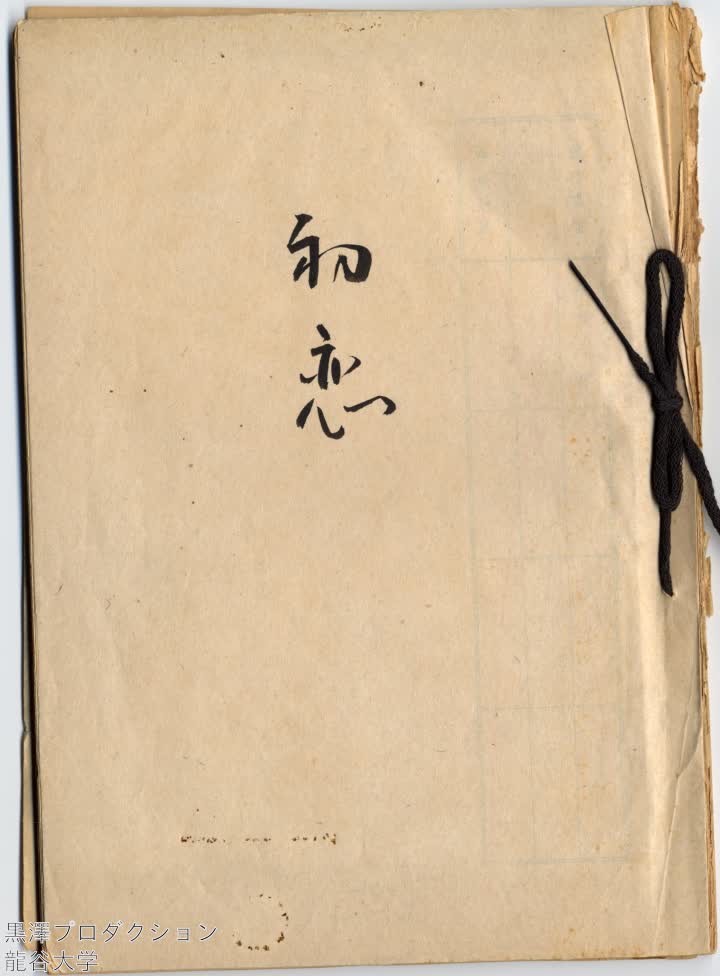 初恋
黒澤プロダクション
龍谷大学